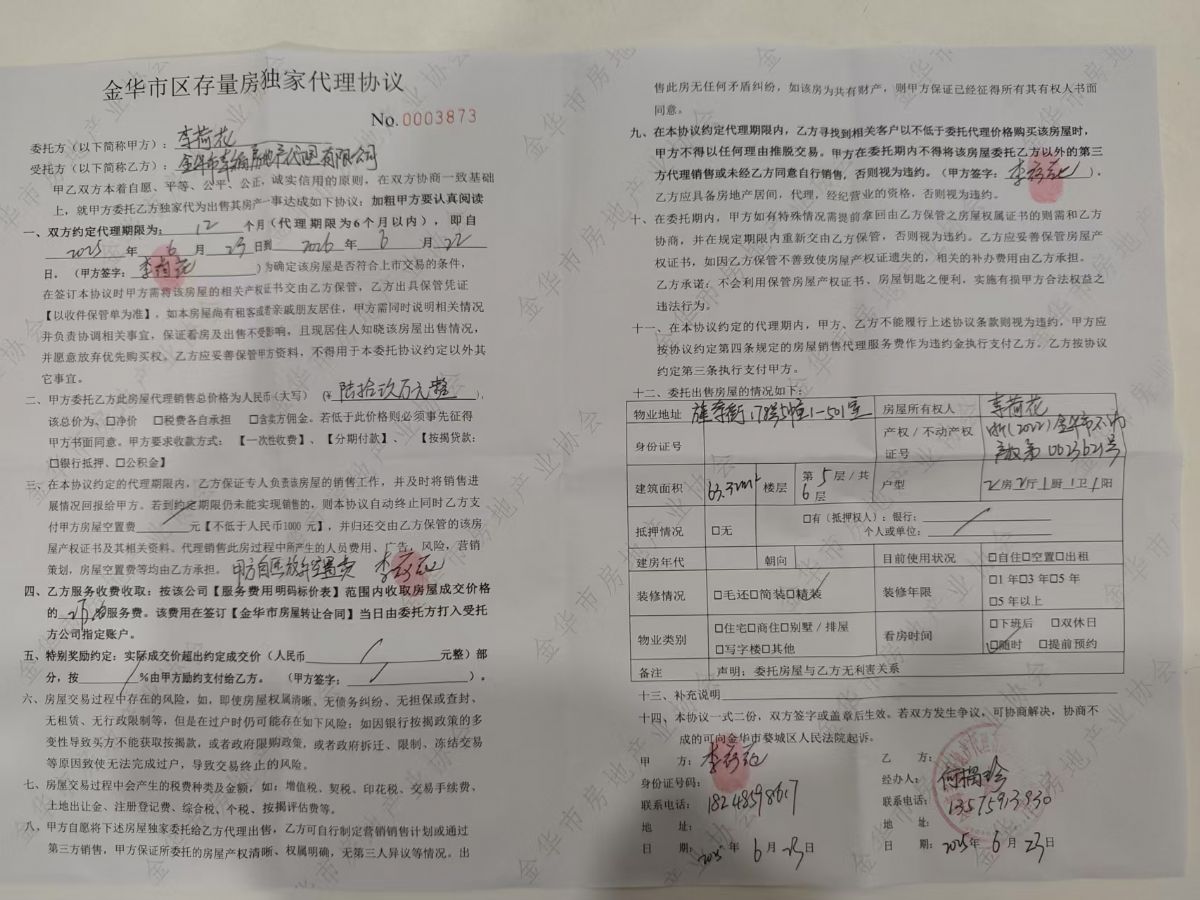 金华市区存量房独家代理协议
No.0003873
委托方（以下简称甲方）：李荷花
受托方（以下简称乙方）：金华市 房地产代理有限公司
甲乙双方本着自愿、平等、公平、公正，诚实信用的原则，在双方协商一致基础
上，就甲方委托乙方独家代为出售其房产一事达成如下协议：加粗甲方要认真阅读
一、双方约定代理期限为：12个月（代理期限为6个月以内），即自
2025年6月23日到2026年6月22
日，（甲方签字：李荷花）为确定该房屋是否符合上市交易的条件，
在签订本协议时甲方需将该房屋的相关产权证书交由乙方保管，乙方出具保管凭证
【以收件保管单为准】，如本房屋尚有租客或者亲戚朋友居住，甲方需同时说明相关情况
并负责协调相关事宜，保证看房及出售不受影响，且现居住人知晓该房屋出售情况，
并愿意放弃优先购买权。乙方应妥善保管甲方资料，不得用于本委托协议约定以外其
它事宜。
二、甲方委托乙方此房屋代理销售总价格为人民币（大写）（¥陆拾玖万元整），
该总价为、□净价 □税费各自承担 □含卖方佣金。若低于此价格则必须事先征得
甲方书面同意。甲方要求收款方式：【一次性收费】、【分期付款】、【按揭贷款：
□银行抵押、□公积金】
三、在本协议约定的代理期限内，乙方保证专人负责该房屋的销售工作，并及时将销售进
展情况回报给甲方。若到约定期限仍未能实现销售的，则本协议自动终止同时乙方支
付甲方房屋空置费 元【不低于人民币1000 元】，并归还交由乙方保管的该房
屋产权证书及其相关资料。代理销售此房过程中所产生的人员费用、广告，风险，营销
策划，房屋空置费等均由乙方承担。甲方自愿放弃空置费 李荷花
四、乙方服务收费收取：按该公司【服务费用明码标价表】范围内收取房屋成交价格
的 服务费。该费用在签订【金华市房屋转让合同】当日由委托方打入受托
方公司指定账户。
五、特别奖励约定：实际成交价超出约定成交价（人民币 元整）部
分，按 %由甲方励约支付给乙方。（甲方签字： ）。
六、房屋交易过程中存在的风险，如，即使房屋权属清晰、无债务纠纷、无担保或查封、
无租赁、无行政限制等，但是在过户时仍可能存在如下风险：如因银行按揭政策的多
变性导致买方不能获取按揭款，或者政府限购政策，或者政府拆迁、限制、冻结交易
等原因致使无法完成过户，导致交易终止的风险。
七、房屋交易过程中会产生的税费种类及金额，如：增值税、契税、印花税、交易手续费，
土地出让金、注册登记费、综合税、个税、按揭评估费等。
八、甲方自愿将下述房屋独家委托给乙方代理出售，乙方可自行制定营销销售计划或通过
第三方销售，甲方保证所委托的房屋产权清晰、权属明确，无第三人异议等情况。出
售此房无任何矛盾纠纷，如该房为共有财产，则甲方保证已经征得所有其有权人书面
同意。
九、在本协议约定代理期限内，乙方寻找到相关客户以不低于委托代理价格购买该房屋时，
甲方不得以任何理由推脱交易。甲方在委托期内不得将该房屋委托乙方以外的第三
方代理销售或未经乙方同意自行销售，否则视为违约。（甲方签字：李荷花），
乙方应具备房地产居间，代理，经纪营业的资格，否则视为违约。
十、在委托期内，甲方如有特殊情况需提前拿回由乙方保管之房屋权属证书的则需和乙方
协商，并在规定期限内重新交由乙方保管，否则视为违约。乙方应妥善保管房屋产
权证书，如因乙方保管不善致使房屋产权证遗失的，相关的补办费用由乙方承担。
乙方承诺：不会利用保管房屋产权证书、房屋钥匙之便利，实施有损甲方合法权益之
违法行为。
十一、在本协议约定的代理期内，甲方、乙方不能履行上述协议条款则视为违约，甲方应
按协议约定第四条规定的房屋销售代理服务费作为违约金执行支付乙方。乙方按协议
约定第三条执行支付甲方。
十二、委托出售房屋的情况如下：
物业地址 旌孝街178号5幢1-501室 房屋所有权人 李荷花
身份证号 产权／不动产权证号 浙(2022)金华市不动产权第0023621号
建筑面积 63.32m² 楼层 第5层／共6层 户型 2房2厅1厨1卫1阳
抵押情况 □无 □有（抵押权人）：银行：
个人或单位：
建房年代 朝向 目前使用状况 □自住□空置□出租
装修情况 □毛还□简装□精装 装修年限 □1年□3年□5年
□5年以上
物业类别 □住宅□商住□别墅／排屋 看房时间 □下班后 □双休日
□写字楼□其他 □随时 □提前预约
备注 声明：委托房屋与乙方无利害关系
十三、补充说明
十四、本协议一式二份，双方签字或盖章后生效。若双方发生争议，可协商解决，协商不
成的可向金华市婺城区人民法院起诉。
甲 方：李荷花 乙 方：
身份证号码： 经办人：何 珍
联系电话：18248598617 联系电话：13575913930
地 址： 地 址：
日 期：2025年6月23日 日 期：2025年6月23日